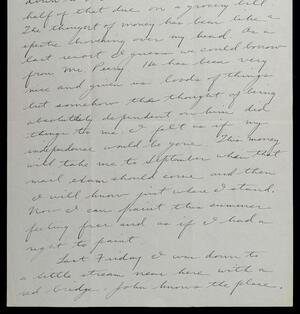 half of that due on a grocery bill
The thought of money has been like a
hovering over my head. As a
last resort I guess we could borrow
from Mr. Perry. He has been very
nice and given us loads of things
but somehow the thought of being
absolutely dependent on him did
things to me I felt as if my
independence would be gone. This money
will take me to September when that
mail exam should come and then
I will know just where I stand.
Now I can paint this summer
feeling free and as if I had a
right to paint.
Last Friday I was down to
a little stream near here with a
red bridge. John knows the place.